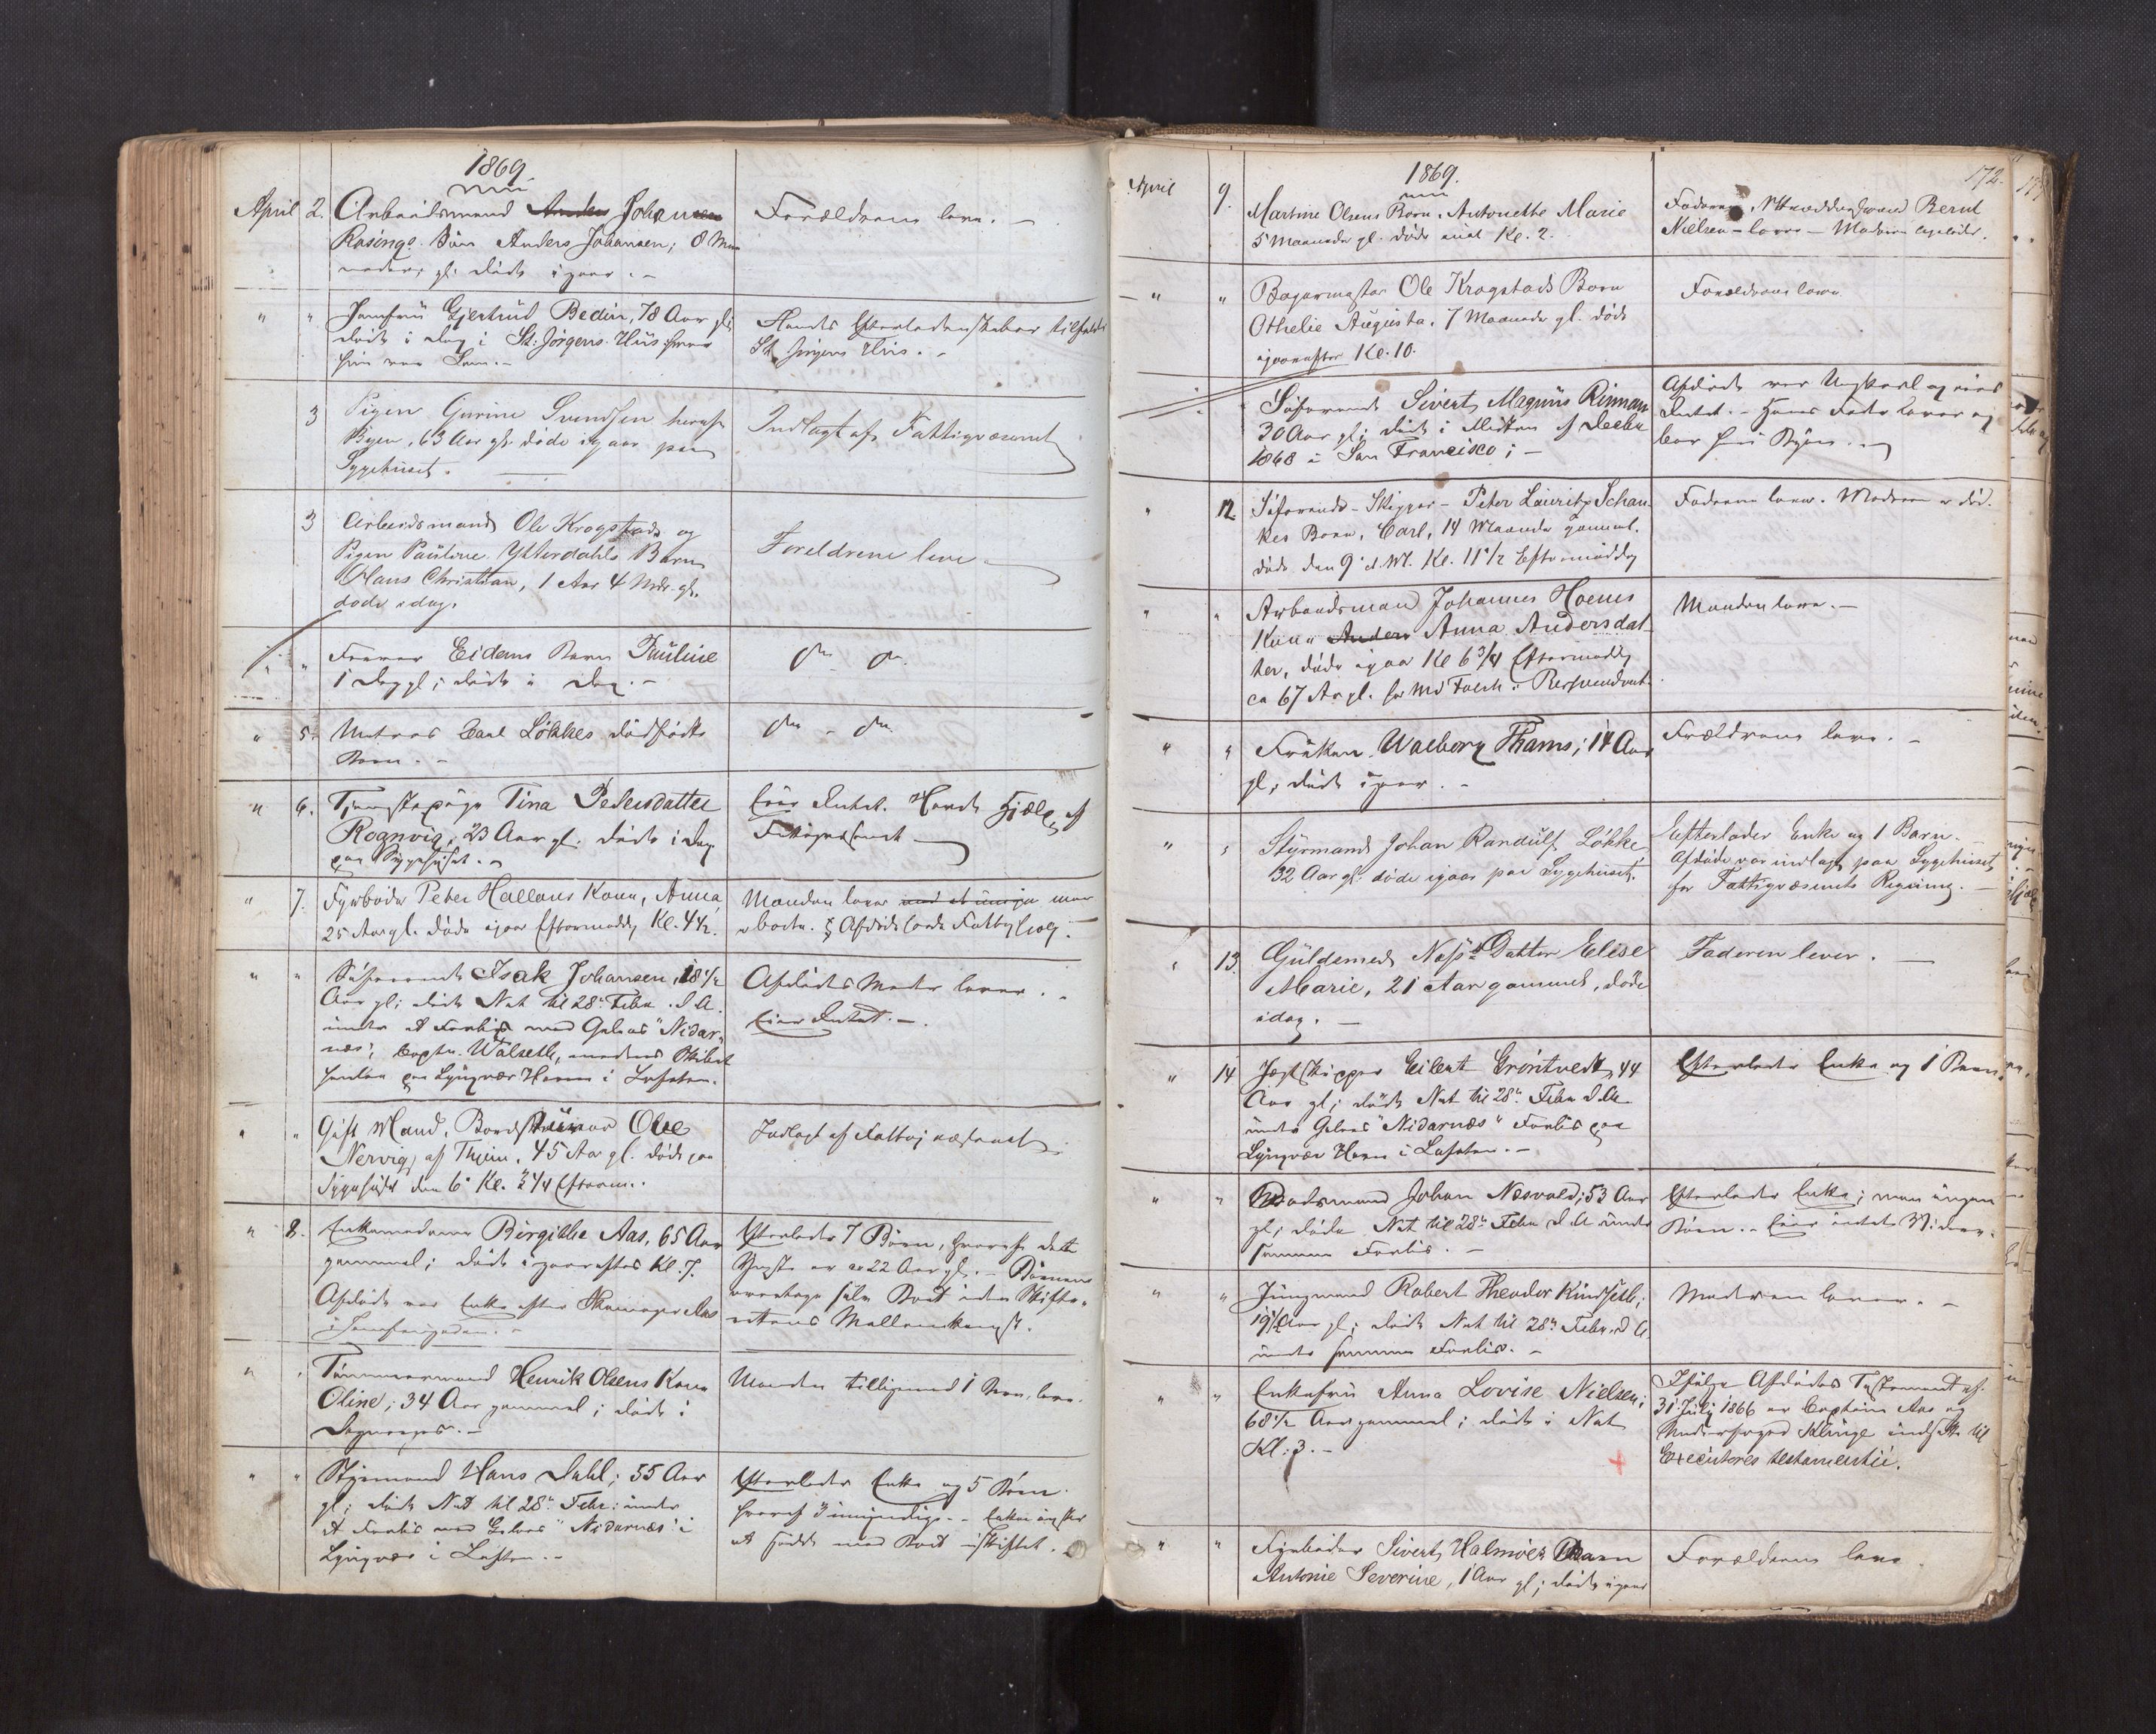 1869.
April 2. Arbeidsmand Anders Johansen
Rosings Søn Anders Johansen; 8 Maa-
neder gl. døde igaar. -
Forældrene leve. -
" " Jomfru Gjertrud Bedin, 78 Aar gl;
døde i Dag i St: Jørgens Huus hvor
hun var Lem. -
Hendes Efterladenskaber tilfalde
St. Jørgens Huus. -
3 Pigen Gurine Svendsen her af
Byen, 63 Aar gl. døde igaar paa
Sygehuset.
Indlagt af Fattigvæsenet
3 Arbeidsmand Ole Krogstads og
Pigen Pauline Ytterdahls Barn
Hans Christian, 1 Aar 4 Mdr. gl.
døde idag.
Foreldrene leve
" " Eidems Barn Pauline
1 Dag gl; døde i Dag. -
do do.
" 5. Matros Carl Løkkes dødfødte
Barn. -
do - do.
" 6. Tjenestepige Tina Pedersdatter
Rognvig, 23 Aar gl. døde i Dag
paa Sygehuset. -
Eier Intet. Havde Hjælp af
Fattigvæsenet
" 7. Fyrbøder Peter Hallans Kone, Anna
25 Aar gl. døde igaar Eftermiddag Kl. 4½.
Manden lever
" " Søfarende Isak Johansen, 18½
Aar gl; døde Nat til 28de Febr. d. A.
under et Forlis med Galeas "Nidar-
næs", Captn. Walseth,
paa Lyngvær Havn i Lofoten.
Afdødes Moder lever. -
Eier Intet. -
" " Gift Mand, Ole
Nervig, af Thjem, 45 Aar gl. døde paa
Sygehuset den 6. Kl. 2¼ Efterm.
Indlagt af Fattigvæsenet
" 8. Enkemadame Birgitte Aas, 65 Aar
gammel; døde igaaraftes Kl. 7.
Afdøde var Enke efter Aas
i
Efterlader 7 Børn, hvoraf det
Yngste er ca 22 Aar gl. - Børnene
overtage selv Boet uden Skifte-
rettens Mellemkomst.
" " Tømmermand Henrik Olsens Kone
Oline; 34 Aar gammel; døde i
Manden tilligemed 1 Barn lever.
" " Styrmand Hans Dahl; 55 Aar
gl; døde Nat til 28de Febr: under
et Forlis med Galeas "Nidarnæs" i
Lyngvær i Lofoten. -
Efterlader Enke og 5 Børn
hvoraf 3 umyndige. - Enken ønsker
at sidde med Boet uskiftet.
1869. 172.
April 9. Martine Olsens Barn, Antonette Marie
5 Maaneder gl. døde inat Kl. 2.
Faderen, Bernt
Nielsen - lever - Moderen ligeledes.
" " Bagermester Ole Krogstads Barn
Othelie Augusta, 7 Maaneder gl. døde
igaaraftes Kl. 10.
Forældrene leve.
Søfarende Sivert Magnus Rinnan
30 Aar gl; døde i Midten af Decbr
1868 i San Francisco; -
Afdøde var Ungkarl og eiede
Intet. - Hans Fader lever og
bor her i Byen. -
" 12. Søfarende - Skipper - Peter Lauritz Schan-
kes Barn, Carl, 14 Maaneder gammel.
døde den 9de d. M. Kl. 11½ Eftermiddag
Faderen lever. Moderen er død.
" " Arbeidsmand Johannes Hoems
Kone Anders Anna Andersdat-
ter, døde igaar Kl 6¾ Eftermiddag
ca 67 Ar gl.
Manden lever. -
" " Frøken Walborg Thams; 14 Aar
gl; døde igaar. -
Forældrene leve. -
" " Styrmand Johan Randulf Løkke
32 Aar gl. døde igaar paa Sygehuset.
Efterlader Enke og 1 Barn.
Afdøde var indlagt paa Sygehuset
for Fattigvæsenets Regning. -
" 13. Guldsmed Næss Datter Elise
Marie, 21 Aar gammel, døde
idag. -
Faderen lever. -
" 14 Jagtskipper Eilert Grøntvedt, 44
Aar gl; døde Nat til 28de Febr d. A.
under Galeas "Nidarnæs" Forlis paa
Lyngvær Havn i Lofoten. -
Efterlader Enke og 1 Barn.
" " Johan Næsvold; 53 Aar
gl; døde Nat til 28de Febr d. A. under
samme Forlis. -
Efterlader Enke; men ingen
Børn. - Eier intet Videre.
" " Jungmand Robert Theodor Kindseth;
19½ Aar gl; døde Nat til 28de Febr. d. A.
under samme Forlis. -
Moderen lever. -
" " Enkefru Anna Lovise Nielsen;
68½ Aar gammel; døde i Nat
Kl: 3. -
Ifølge Afdødes Testament af
31 Juli 1866 er Captain Aas og
Klinge indsatte til
Executores testamentii.
" " Fyrbøder Sivert Halmøes Barn
Antonie Severine, 1 Aar gl; døde igaar
Forældrene leve.